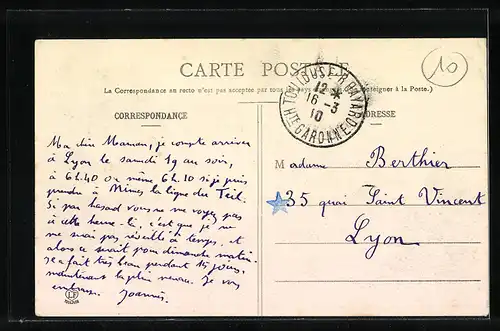 CARTE POSTALE
10
(La Correspondance au recto n'est pas acceptée par tous les pays étrangers. Se renseigner à la Poste.)
CORRESPONDANCE
ADRESSE
TOULOUSE R. BAYARD
12 *
16 - 3
10
HTE GARONNE
Ma chère Maman, je compte arriver
à Lyon le samedi 19 au soir,
à 6h.40 ou même 6h.10 si je puis
prendre à Nîmes la ligne du Teil.
Si par hasard vous ne me voyez pas
à cette heure-là, c'est que je ne
me serai pas réveillé à temps, et
alors ce serait pour dimanche matin.
Il a fait très beau pendant 15 jours,
maintenant la pluie revient. Je vous
embrasse. Joannès.
Madame Berthier
35 quai Saint Vincent
Lyon
LF